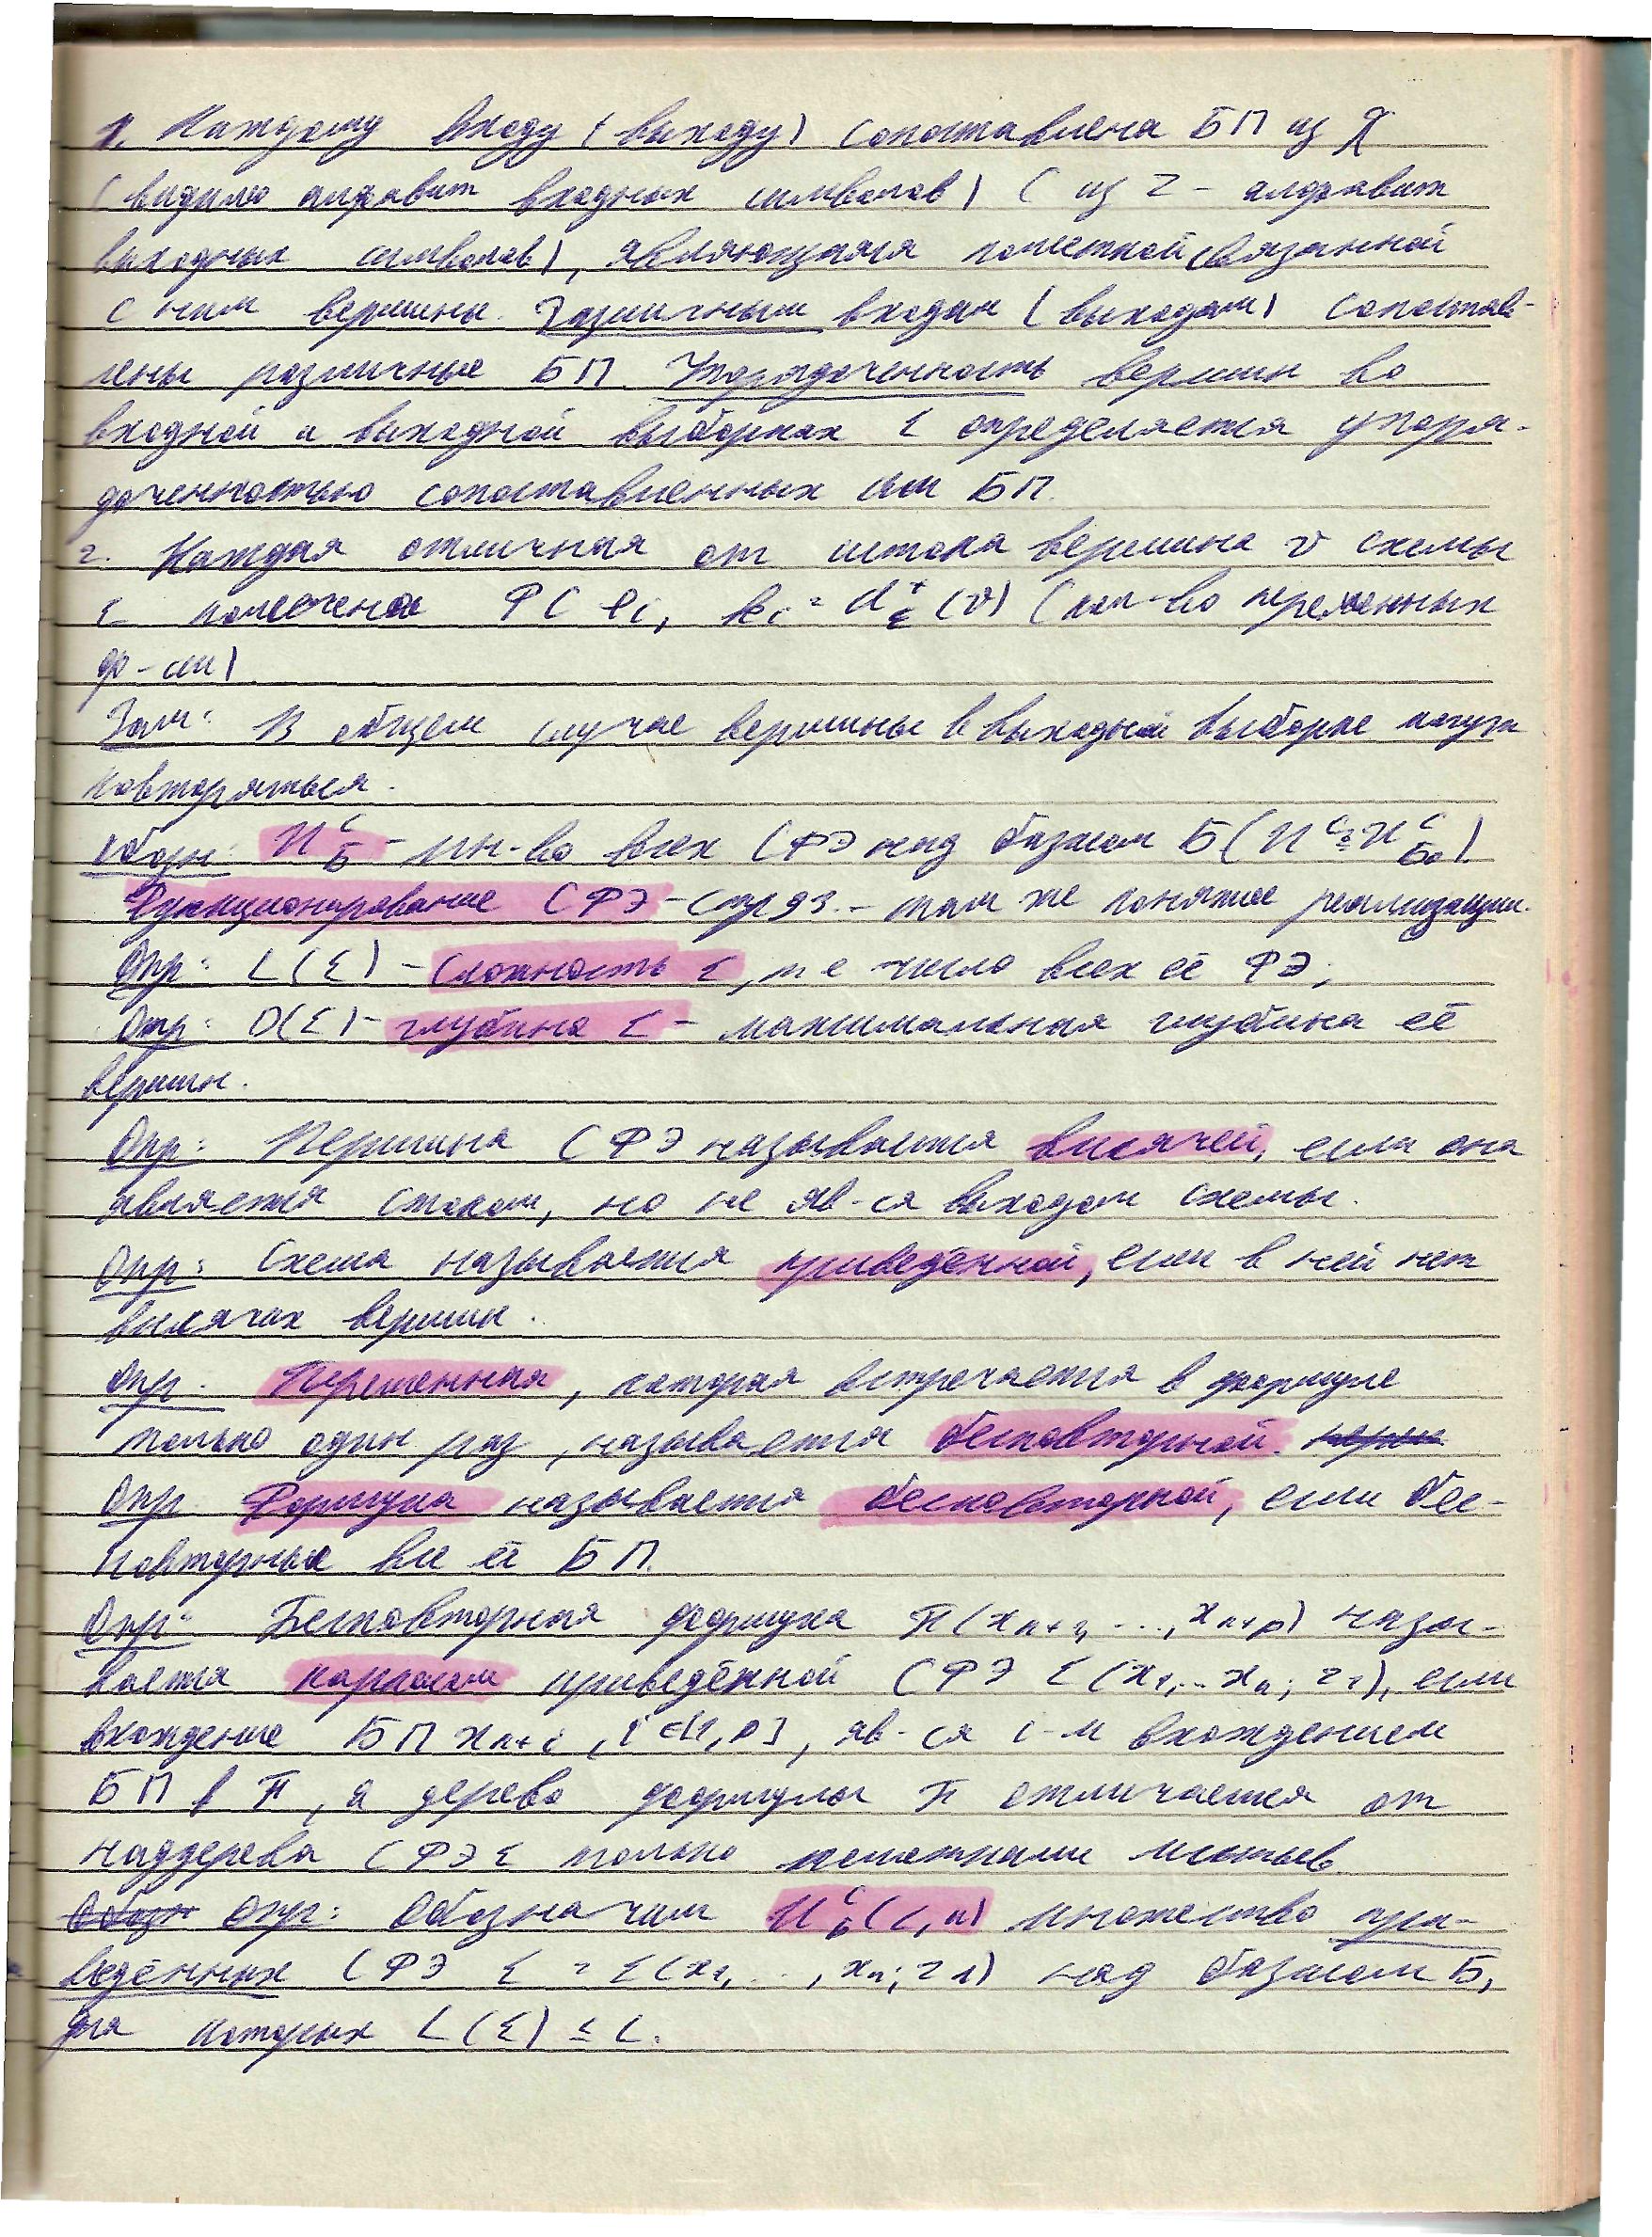 1. Каждому входу (выходу) сопоставлена БП из X
(видимо алфавит входных символов) (из Z – алфавит
выходных символов), являющаяся пометкой связанной
с ним вершины. Различным входам (выходам) сопостав-
лены различные БП. Упорядоченность вершин во
входной и выходной выборках Σ определяется упоря-
доченностью сопоставленных им БП.
2. Каждая отличная от истока вершина v схемы
Σ помечена ФС φi, ki = d⁺Σ(v) (кол-во переменных
ф-ии)
Зам: В общем случае вершины в выходной выборке могут
повторяться.
Обозн: U^C_Б – мн-во всех СФЭ над базисом Б (U^C = U^C_Б₀)
Функционирование СФЭ – стр 93. – там же понятие реализации.
Опр: L(Σ) – сложность Σ, т е число всех её ФЭ;
Опр: D(Σ) – глубина Σ – максимальная глубина её
вершин.
Опр: Вершина СФЭ называется висячей, если она
является стоком, но не яв-ся выходом схемы.
Опр: Схема называется приведённой, если в ней нет
висячих вершин.
Опр. Переменная, которая встречается в формуле
только один раз, называется бесповторной.
Опр. Формула называется бесповторной, если бес-
повторные все её БП.
Опр: Бесповторная формула π(x_{n+1}, ..., x_{n+p}) назы-
вается каркасом приведённой СФЭ Σ(x₁,.. x_n; z₁), если
вхождение БП x_{n+i}, i ∈ [1, p], яв-ся i-м вхождением
БП в π, а дерево формулы π отличается от
наддерева СФЭ Σ только пометками листьев.
Обозн Опр: Обозначим U^C_Б(L, n) множество при-
ведённых СФЭ Σ = Σ(x₁, ..., x_n; z₁) над базисом Б,
для которых L(Σ) ≤ L.